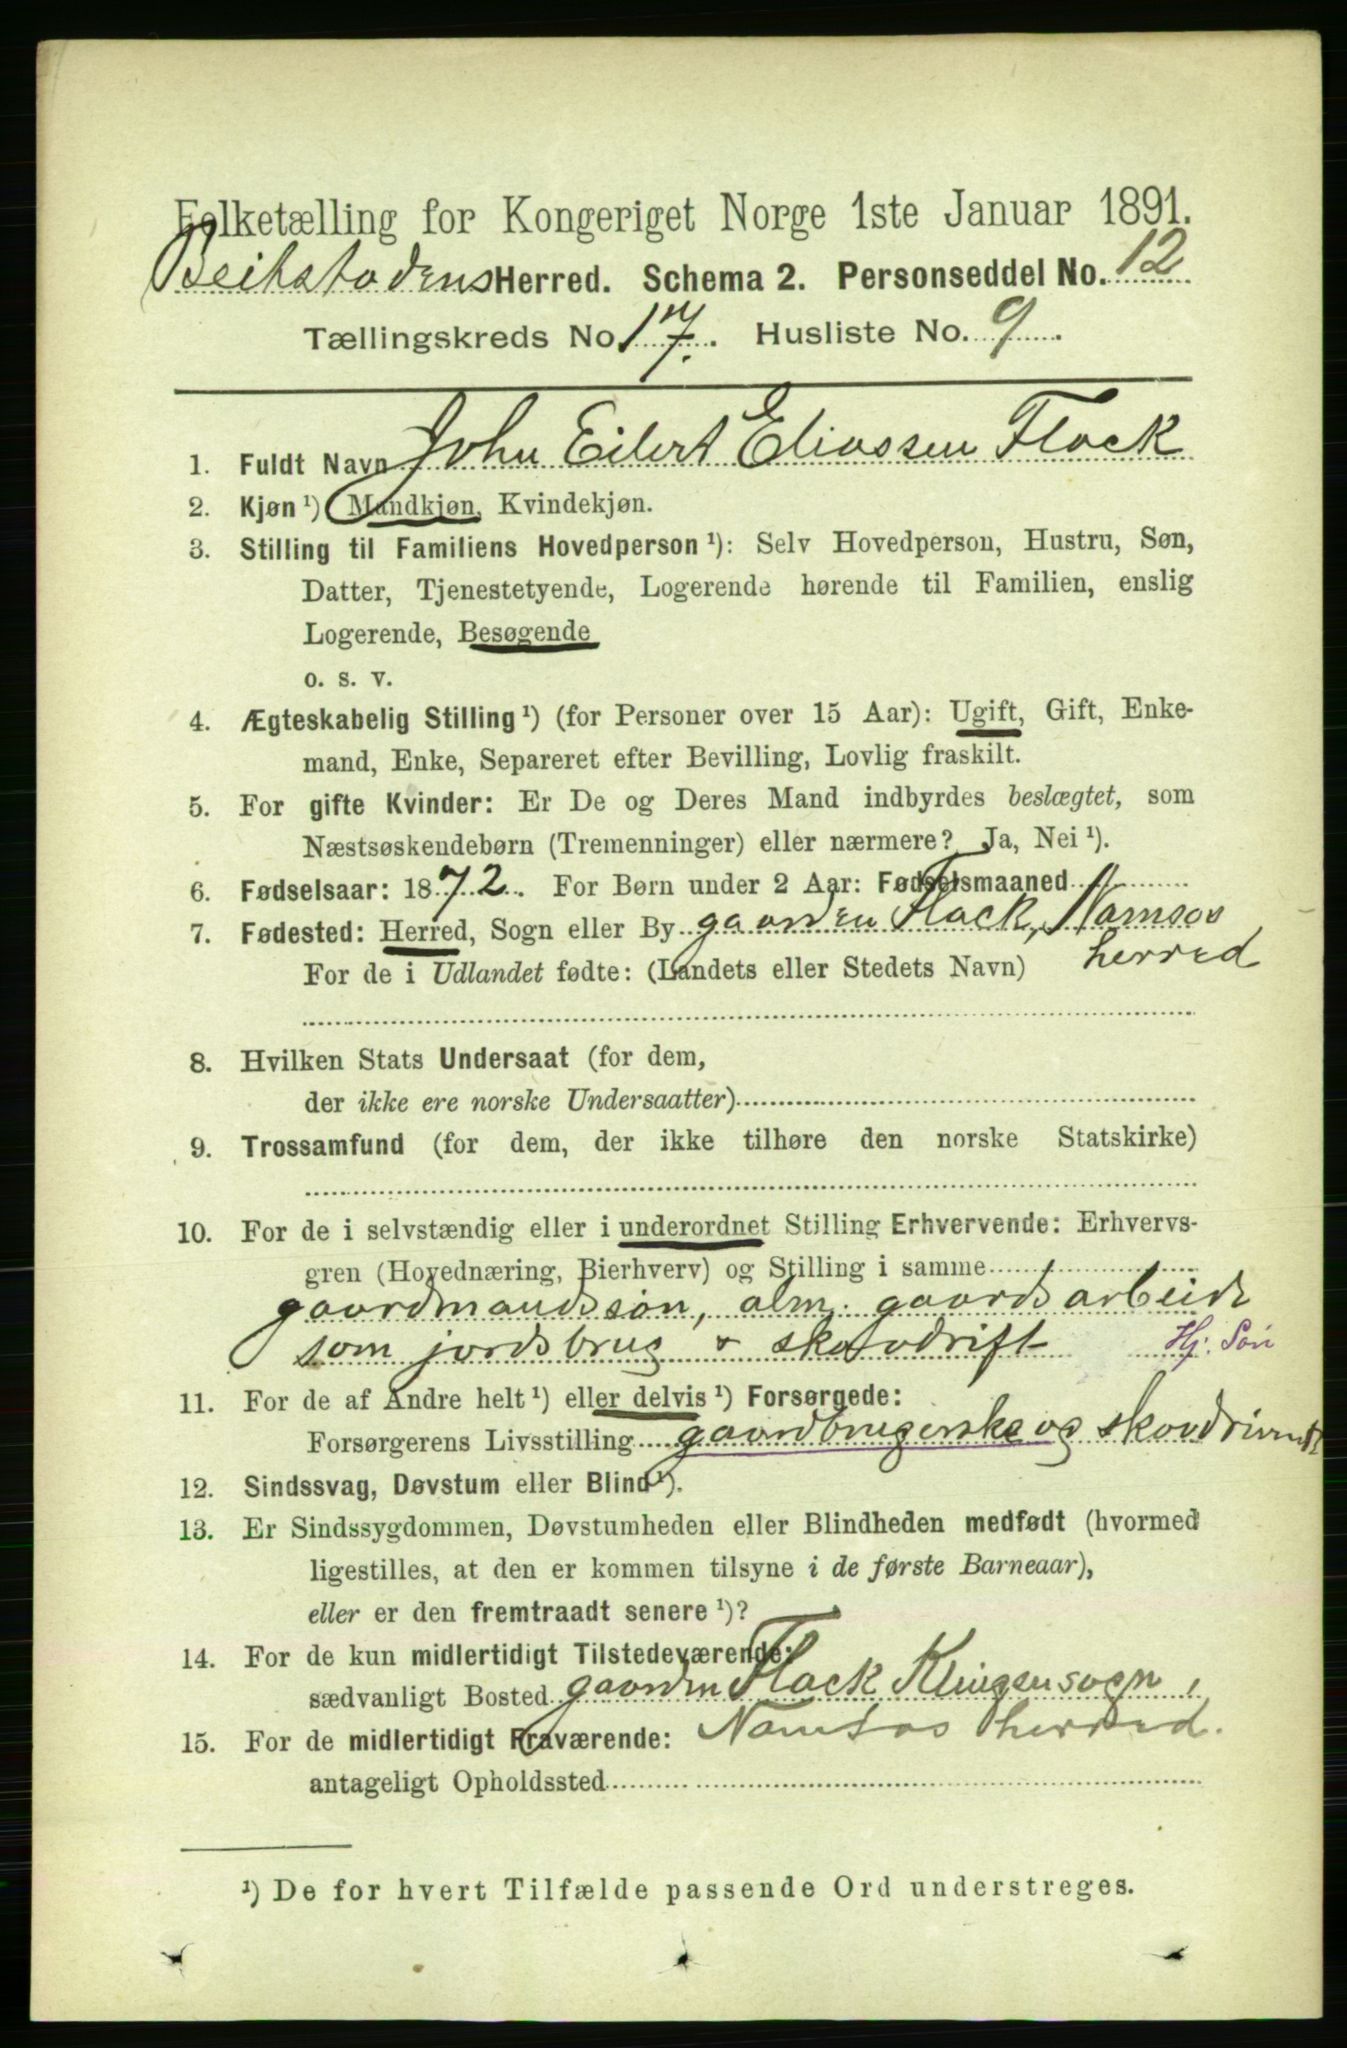 Folketælling for Kongeriget Norge 1ste Januar 1891.
Beitstadens Herred. Schema 2. Personseddel No. 12
Tællingskreds No. 17. Husliste No. 9.
1. Fuldt Navn John Eilert Eliassen Flack
2. Kjøn ¹) Mandkjøn, Kvindekjøn.
3. Stilling til Familiens Hovedperson ¹): Selv Hovedperson, Hustru, Søn,
Datter, Tjenestetyende, Logerende hørende til Familien, enslig
Logerende, Besøgende
o. s. v.
4. Ægteskabelig Stilling ¹) (for Personer over 15 Aar): Ugift, Gift, Enke-
mand, Enke, Separeret efter Bevilling, Lovlig fraskilt.
5. For gifte Kvinder: Er De og Deres Mand indbyrdes beslægtet, som
Næstsøskendebørn (Tremenninger) eller nærmere? Ja, Nei ¹).
6. Fødselsaar: 1872. For Børn under 2 Aar: Fødselsmaaned
7. Fødested: Herred, Sogn eller By gaarden Flack, Namsos
herred
For de i Udlandet fødte: (Landets eller Stedets Navn)
8. Hvilken Stats Undersaat (for dem,
der ikke ere norske Undersaatter)
9. Trossamfund (for dem, der ikke tilhøre den norske Statskirke)
10. For de i selvstændig eller i underordnet Stilling Erhvervende: Erhvervs-
gren (Hovednæring, Bierhverv) og Stilling i samme
gaardmandssøn, alm. gaardsarbeide
som jordsbrug & skovdrift Hj. Søn
11. For de af Andre helt ¹) eller delvis ¹) Forsørgede:
Forsørgerens Livsstilling gaardbrugerske og skovdrivende
12. Sindssvag, Døvstum eller Blind ¹).
13. Er Sindssygdommen, Døvstumheden eller Blindheden medfødt (hvormed
ligestilles, at den er kommen tilsyne i de første Barneaar),
eller er den fremtraadt senere ¹)?
14. For de kun midlertidigt Tilstedeværende:
sædvanligt Bosted gaarden Flack Klingen sogn,
Namsos herred.
15. For de midlertidigt Fraværende:
antageligt Opholdssted
¹) De for hvert Tilfælde passende Ord understreges.